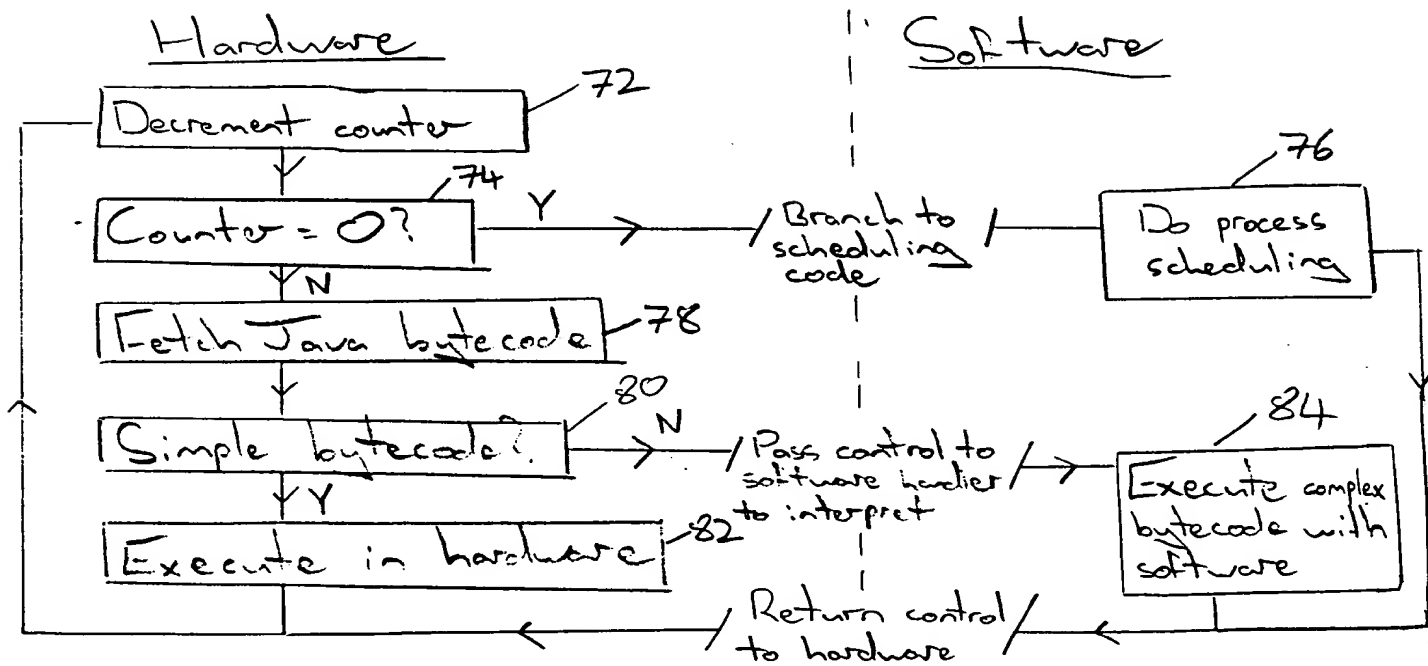 Hardware
Software
Decrement counter
72
74
Counter = 0?
Y
Branch to
scheduling
code
76
Do process
scheduling
N
Fetch Java bytecode
78
80
Simple bytecode?
N
Pass control to
software handler
to interpret
84
Execute complex
bytecode with
software
Y
Execute in hardware
82
Return control
to hardware